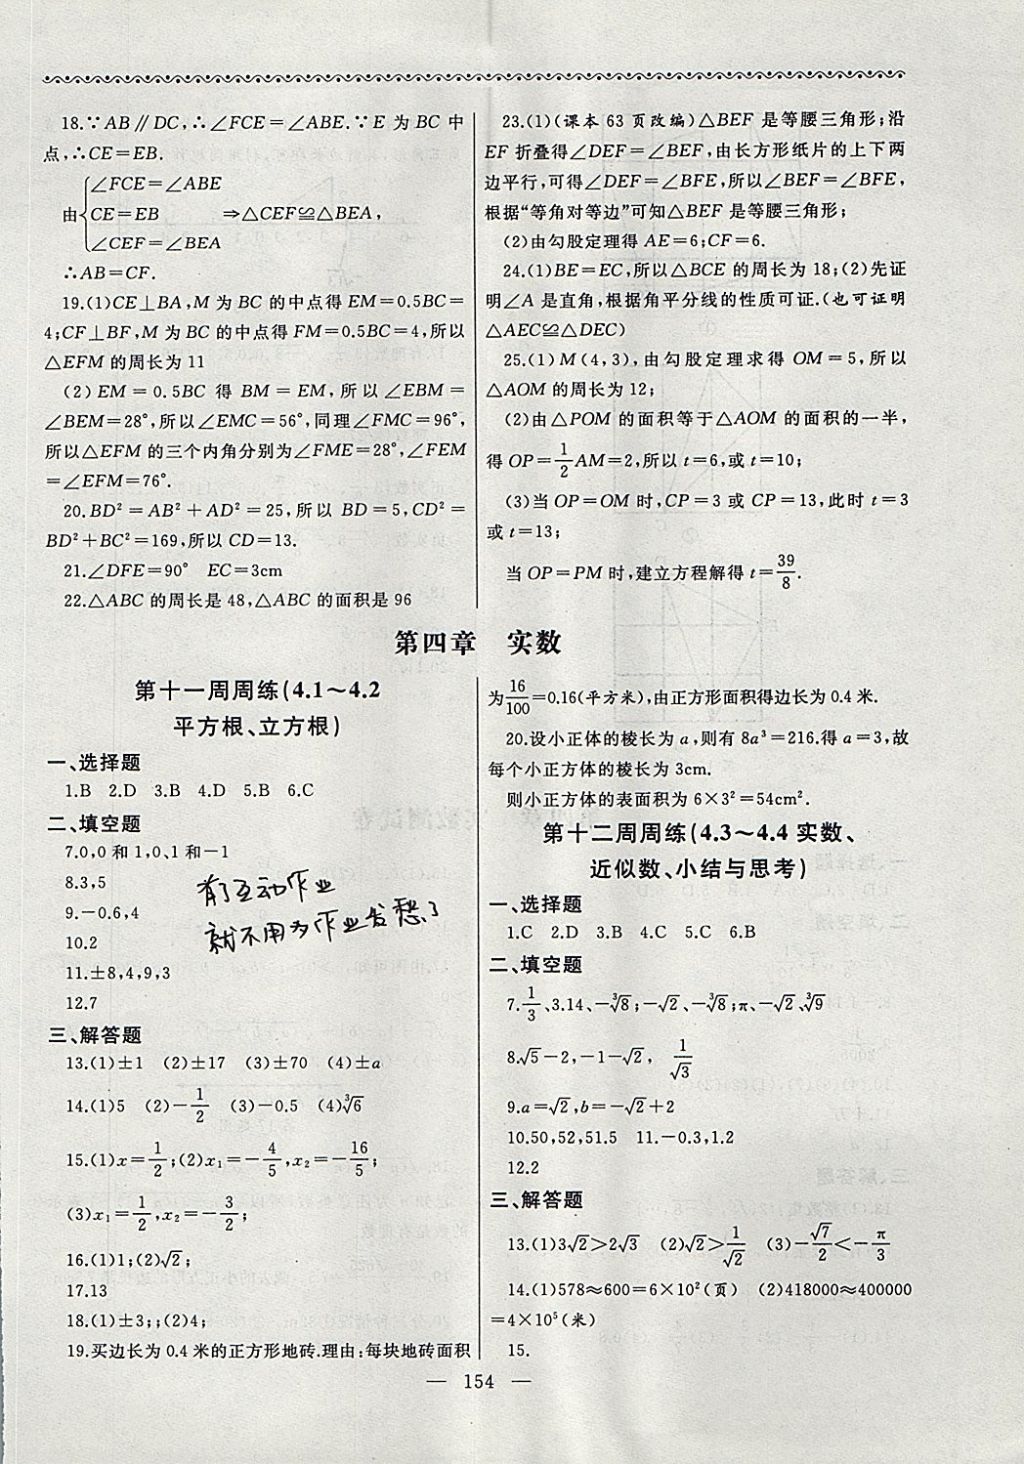 18.∵AB∥DC,∴∠FCE=∠ABE.∵E 为 BC 中
点,∴CE=EB.
∠FCE=∠ABE
由{CE=EB ⇒△CEF≌△BEA,
∠CEF=∠BEA
∴AB=CF.
19.(1)CE⊥BA,M 为 BC 的中点得 EM=0.5BC=
4;CF⊥BF,M 为 BC 的中点得 FM=0.5BC=4,所以
△EFM 的周长为 11
(2)EM=0.5BC 得 BM=EM,所以∠EBM=
∠BEM=28°,所以∠EMC=56°,同理∠FMC=96°,
所以△EFM 的三个内角分别为∠FME=28°,∠FEM
=∠EFM=76°.
20.BD²=AB²+AD²=25,所以 BD=5,CD²=
BD²+BC²=169,所以 CD=13.
21.∠DFE=90° EC=3cm
22.△ABC 的周长是 48,△ABC 的面积是 96
23.(1)(课本 63 页改编)△BEF 是等腰三角形;沿
EF 折叠得∠DEF=∠BEF,由长方形纸片的上下两
边平行,可得∠DEF=∠BFE,所以∠BEF=∠BFE,
根据“等角对等边”可知△BEF 是等腰三角形;
(2)由勾股定理得 AE=6;CF=6.
24.(1)BE=EC,所以△BCE 的周长为 18;(2)先证
明∠A 是直角,根据角平分线的性质可证.(也可证明
△AEC≌△DEC)
25.(1)M(4,3),由勾股定理求得 OM=5,所以
△AOM 的周长为 12;
(2)由△POM 的面积等于△AOM 的面积的一半,
得 OP=1/2AM=2,所以 t=6,或 t=10;
(3)当 OP=OM 时,CP=3 或 CP=13,此时 t=3
或 t=13;
当 OP=PM 时,建立方程解得 t=39/8.
第四章 实数
第十一周周练(4.1～4.2
平方根、立方根)
一、选择题
1.B 2.D 3.B 4.D 5.B 6.C
二、填空题
7.0,0 和 1,0、1 和-1
8.3,5
9.-0.6,4
10.2
11.±8,4,9,3
12.7
有了互动作业
就不用为作业发愁了
三、解答题
13.(1)±1 (2)±17 (3)±70 (4)±a
14.(1)5 (2)-1/2 (3)-0.5 (4)∛6
15.(1)x=1/2;(2)x₁=-4/5,x₂=-16/5;
(3)x₁=1/2,x₂=-3/2;
16.(1)1;(2)√2;
17.13
18.(1)±3;;(2)4;
19.买边长为 0.4 米的正方形地砖.理由:每块地砖面积
为16/100=0.16(平方米),由正方形面积得边长为 0.4 米.
20.设小正体的棱长为 a,则有 8a³=216.得 a=3,故
每个小正方体的棱长为 3cm.
则小正方体的表面积为 6×3²=54cm².
第十二周周练(4.3～4.4 实数、
近似数、小结与思考)
一、选择题
1.C 2.D 3.B 4.C 5.C 6.B
二、填空题
7.1/3、3.14、-∛8;-√2、-∛8;π、-√2、∛9
8.√5-2,-1-√2, 1/√3
9.a=√2,b=-√2+2
10.50,52,51.5 11.-0.3,1.2
12.2
三、解答题
13.(1)3√2>2√3 (2)√2>1/√2 (3)-√7/2<-π/3
14.(1)578≈600=6×10²(页) (2)418000≈400000
=4×10⁵(米)
15.
— 154 —